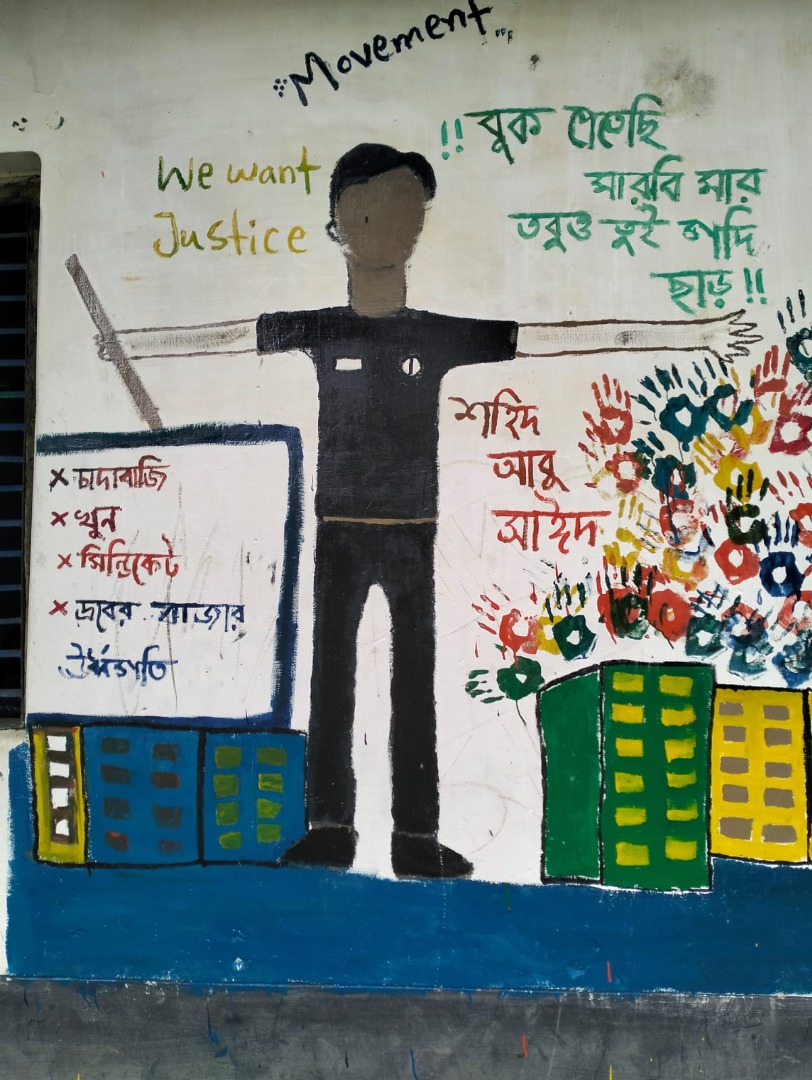 Movement...
We want
Justice
!! বুক পেতেছি
মারবি মার
তবুও তুই গদি
ছাড় !!
শহিদ
আবু
সাঈদ
× চাদাবাজি
× খুন
× সিন্ডিকেট
× দ্রবের বাজার
উর্ধ্বগতি